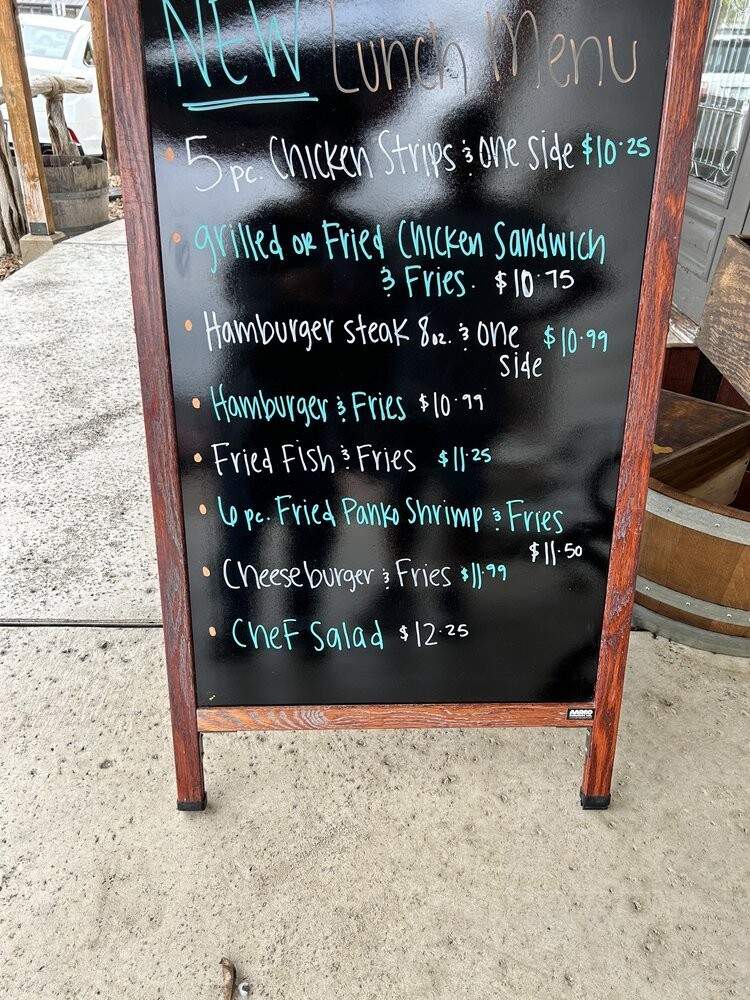 NEW Lunch Menu
• 5 pc. Chicken Strips & one side $10.25
• grilled or Fried Chicken Sandwich
& Fries. $10.75
• Hamburger steak 8oz. & one $10.99
side
• Hamburger & Fries $10.99
• Fried Fish & Fries $11.25
• 6 pc. Fried Panko Shrimp & Fries
$11.50
• Cheeseburger & Fries $11.99
• Chef Salad $12.25
AARCO